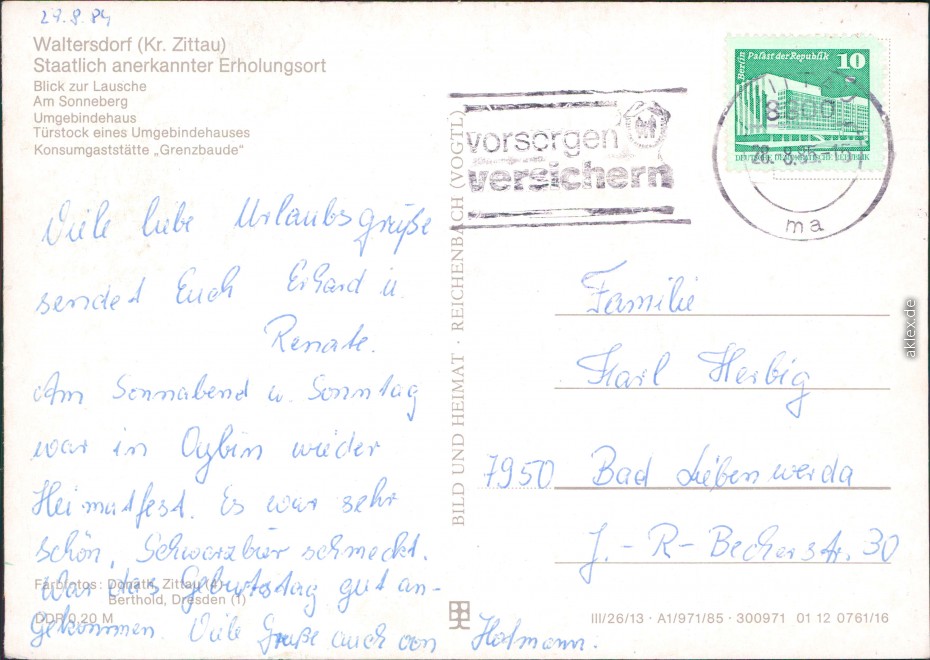 29.8.84
Waltersdorf (Kr. Zittau)
Staatlich anerkannter Erholungsort
Blick zur Lausche
Am Sonneberg
Umgebindehaus
Türstock eines Umgebindehauses
Konsumgaststätte „Grenzbaude"
Viele liebe Urlaubsgrüße
sendet Euch Erhard u.
Renate.
Am Sonnabend u. Sonntag
war in Oybin wieder
Heimatfest. Es war sehr
schön, Schwarzbier schmeckt.
War das Geburtstag gut an-
gekommen. Viele Grüße auch von Hofmann.
Farbfotos: Donath, Zittau (4)
Berthold, Dresden (1)
DDR 0,20 M
BILD UND HEIMAT · REICHENBACH (VOGTL)
vorsorgen
versichern
Berlin Palast der Republik 10
DEUTSCHE DEMOKRATISCHE REPUBLIK
8800
28.-8.85.-15
ma
Familie
Karl Herbig
7950 Bad Liebenwerda
J.-R-Becherstr. 30
III/26/13 · A1/971/85 · 300971 01 12 0761/16
aklex.de